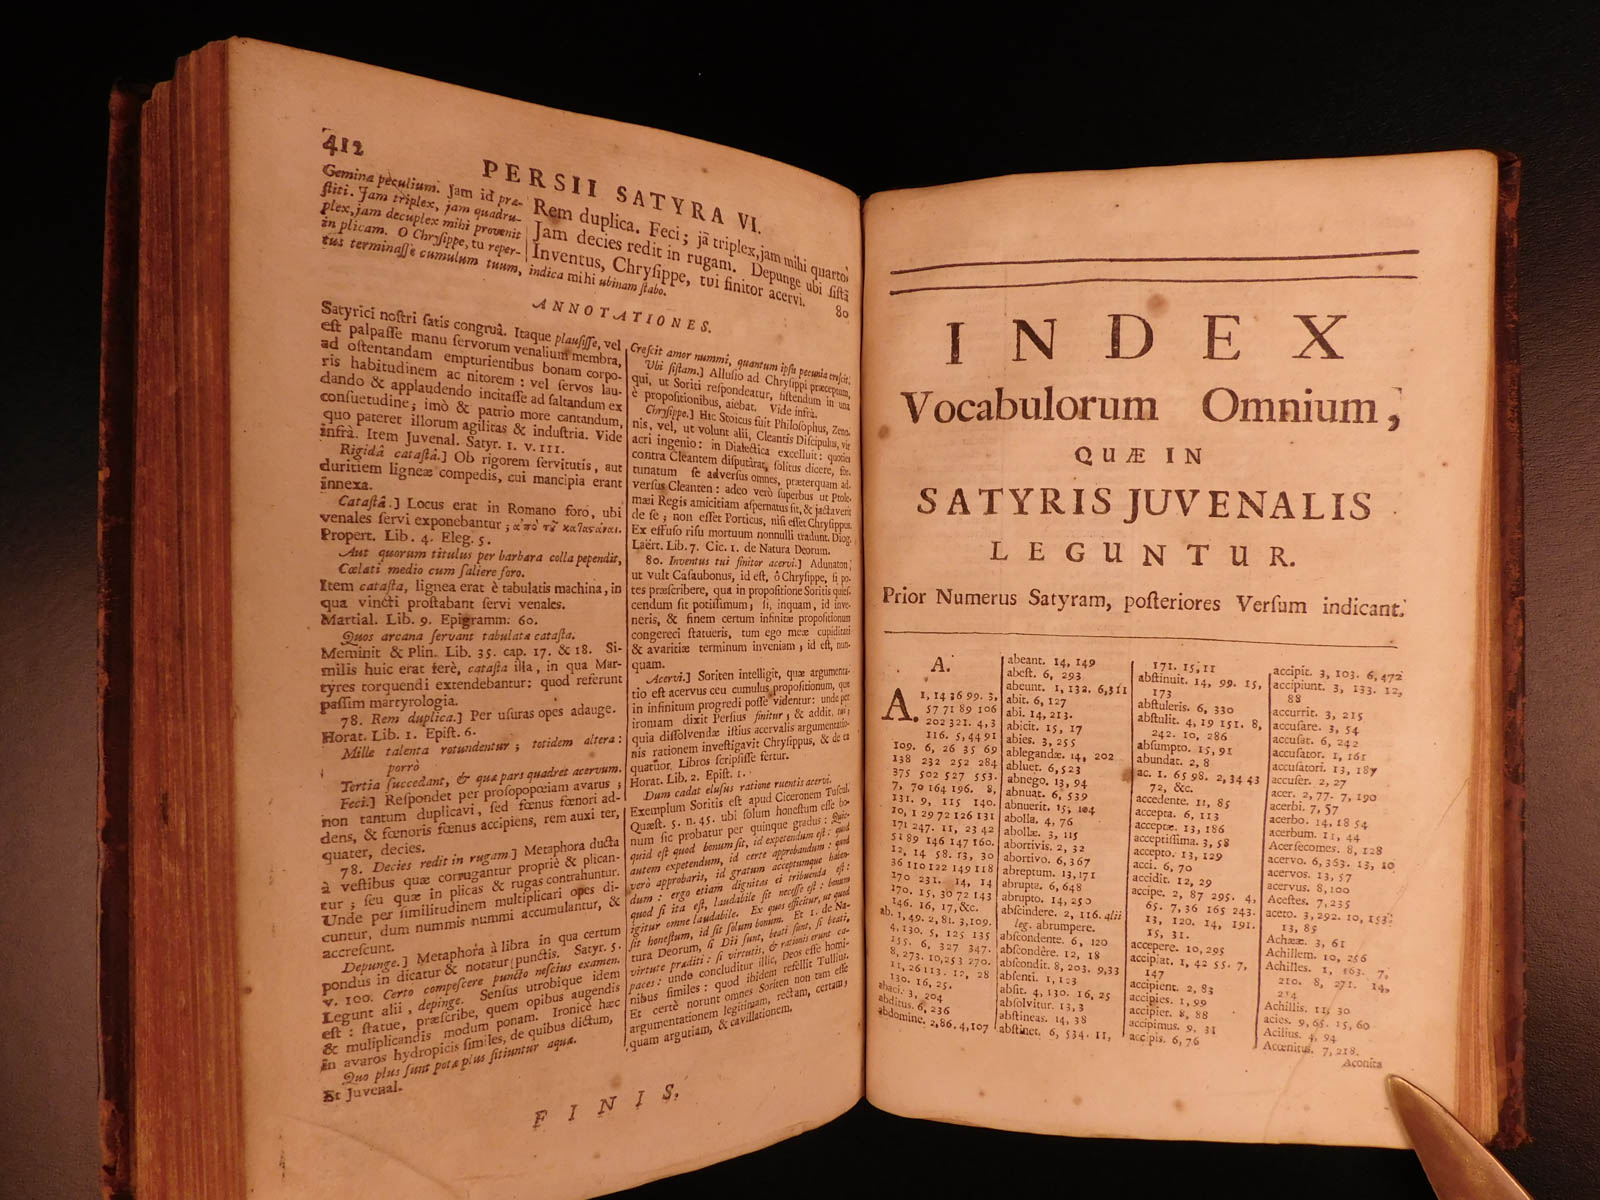 412
PERSII SATYRA VI.
Geminæ peculium. Jam id præ-
stiti. Jam triplex, jam quadru-
plex, jam decuplex mihi provenit
in plicam. O Chrysippe, tu reper-
tus terminasse cumulum tuum, indica mihi ubinam stabo.
Rem duplica. Feci; jā triplex, jam mihi quarto,
Jam decies redit in rugam. Depunge ubi sistā
Inventus, Chrysippe, tui finitor acervi. 80
ANNOTATIONES.
Satyrici nostri satis congruâ. Itaque plausisse, vel
est palpasse manu servorum venalium membra,
ad ostentandam empturientibus bonam corpo-
ris habitudinem ac nitorem: vel servos lau-
dando & applaudendo incitasse ad saltandum ex
consuetudine; imò & patrio more cantandum,
quo pateret illorum agilitas & industria. Vide
infrà. Item Juvenal. Satyr. 1. v. 111.
Rigidâ catastâ.] Ob rigorem servitutis, aut
duritiem ligneæ compedis, cui mancipia erant
innexa.
Catastâ.] Locus erat in Romano foro, ubi
venales servi exponebantur;
Propert. Lib. 4. Eleg. 5.
Aut quorum titulus per barbara colla pependit,
Cœlati medio cum saliere foro.
Item catasta, lignea erat è tabulatis machina, in
qua vincti prostabant servi venales.
Martial. Lib. 9. Epigramm. 60.
Quos arcana servant tabulata catastæ.
Meminit & Plin. Lib. 35. cap. 17. & 18. Si-
milis huic erat ferè, catasta illa, in qua Mar-
tyres torquendi extendebantur: quod referunt
passim martyrologia.
78. Rem duplica.] Per usuras opes adauge.
Horat. Lib. 1. Epist. 6.
Mille talenta rotundentur; totidem altera:
porrò
Tertia succedant, & quæ pars quadret acervum.
Feci.] Respondet per prosopopœiam avarus;
non tantum duplicavi, sed fœnus fœnori ad-
dens, & fœnoris fœnus accipiens, rem auxi ter,
quater, decies.
78. Decies redit in rugam.] Metaphora ducta
à vestibus quæ corrugantur propriè & plican-
tur; seu quæ in plicas & rugas contrahuntur.
Unde per similitudinem multiplicari opes di-
cuntur, dum nummis nummi accumulantur, &
accrescunt.
Depunge.] Metaphora à libra in qua certum
pondus indicatur & notatur punctis. Satyr. 5.
v. 100. Certo compescere puncto nescius examen.
Legunt alii, depinge. Sensus utrobique idem
est: statue, præscribe, quem opibus augendis
& multiplicandis modum ponam. Ironicè hæc
in avaros hydropicis similes, de quibus dictum,
Quo plus sunt potæ plus sitiuntur aquæ.
Et Juvenal.
Crescit amor nummi, quantum ipsa pecunia crescit.
Ubi sistam.] Allusio ad Chrysippi præceptum,
qui, ut Soriti respondeatur, sistendum in una
è propositionibus, aiebat. Vide infrà.
Chrysippe.] Hic Stoicus fuit Philosophus, Zeno-
nis, vel, ut volunt alii, Cleantis Discipulus, vir
acri ingenio: in Dialectica excelluit: quoties
contra Cleantem disputârat, solitus dicere, for-
tunatum se adversus omnes, præterquam ad-
versus Cleanten: adeo verò superbus ut Ptole-
mæi Regis amicitiam aspernatus sit, & jactaverit
de se; non esset Porticus, nisi esset Chrysippus.
Ex effuso risu mortuum nonnulli tradunt. Diog.
Laërt. Lib. 7. Cic. 1. de Natura Deorum.
80. Inventus tui finitor acervi.] Adunaton,
ut vult Casaubonus, id est, ô Chrysippe, si po-
tes præscribere, qua in propositione Soritis quies-
cendum sit potissimum; si, inquam, id inve-
neris, & finem certum infinitæ propositionum
congeriei statueris, tum ego meæ cupiditati
& avaritiæ terminum inveniam; id est, nun-
quam.
Acervi.] Soriten intelligit, quæ argumenta-
tio est acervus ceu cumulus propositionum, quæ
in infinitum progredi posse videntur: unde per
ironiam dixit Persius finitur, & addit, tui;
quia dissolvendæ istius acervalis argumentatio-
nis rationem investigavit Chrysippus, & de ea
quatuor Libros scripsisse fertur.
Horat. Lib. 2. Epist. 1.
Dum cadat elusus ratione ruentis acervi.
Exemplum Soritis est apud Ciceronem Tuscul.
Quæst. 5. n. 45. ubi solum honestum esse bo-
num sic probatur per quinque gradus: Quic-
quid est quod bonum sit, id expetendum est: quod
autem expetendum, id certe approbandum: quod
verò approbaris, id gratum acceptumque haben-
dum: ergo etiam dignitas ei tribuenda est:
quod si ita est, laudabile sit necesse est: bonum
igitur omne laudabile. Ex quo efficitur, ut quod
sit honestum, id sit solum bonum. Et 1. de Na-
tura Deorum, si Dii sunt, beati sunt, si beati,
virtute præditi: si virtutis, & rationis erunt ca-
paces: unde concluditur illic, Deos esse homi-
nibus similes: quod ibidem refellit Tullius.
Et certè norunt omnes Soriten non tam esse
argumentationem legitimam, rectam, certam,
quam argutiam, & cavillationem.
FINIS.
INDEX
Vocabulorum Omnium,
QUÆ IN
SATYRIS JUVENALIS
LEGUNTUR.
Prior Numerus Satyram, posteriores Versum indicant.
A.
A. 1, 14 36 99. 3,
57 71 89 106
202 321. 4, 3
116. 5, 44 91
109. 6, 26 35 69
138 232 252 284
375 502 527 553.
7, 70 164 196. 8,
131. 9, 115 140.
10, 1 29 72 126 131
171 247. 11, 23 42
51 89 146 147 160.
12, 14 58. 13, 30
36 110 122 149 118
170 231. 14, 14
170. 15, 30 72 143
146. 16, 17, &c.
ab. 1, 49. 2, 81. 3, 109.
4, 130. 5, 125 135
155. 6, 327 347.
8, 273. 10, 253 270.
11, 26 113. 12, 28
130. 16, 25.
abaci. 3, 204
abditus. 6, 236
abdomine. 2, 86. 4, 107
abeant. 14, 149
abest. 6, 293
abeunt. 1, 132. 6, 311
abit. 6, 127
abi. 14, 213.
abicit. 15, 17
abies. 3, 255
ablegandæ. 14, 202
abluet. 6, 523
abnego. 13, 94
abnuat. 6, 539
abnuerit. 15, 104
abolla. 4, 76
abollæ. 3, 115
abortivis. 2, 32
abortivo. 6, 367
abreptum. 13, 171
abrupta. 6, 648
abrupto. 14, 250
abscindere. 2, 116. alii
leg. abrumpere.
abscondente. 6, 120
abscondêre. 12, 18
abscondit. 8, 203. 9, 33
absenti. 1, 123
absit. 4, 130. 16, 25
absolvitur. 13, 3
abstineas. 14, 38
abstinet. 6, 534. 11,
171. 15, 11
abstinuit. 14, 99. 15,
173
abstuleris. 6, 330
abstulit. 4, 19 151. 8,
242. 10, 286
absumpto. 15, 91
abundat. 2, 8
ac. 1. 65 98. 2, 34 43
72, &c.
accedente. 11, 85
accepta. 6, 113
acceptæ. 13, 186
acceptissima. 3, 58
accepto. 13, 129
acci. 6, 70
accidit. 12, 29
accipe. 2, 87 295. 4,
65. 7, 36 165 243.
13, 120. 14, 191.
15, 31.
accepere. 10, 295
accipiat. 1, 42 55. 7,
147
accipient. 2, 83
accipies. 1, 99
accipiet. 8, 88
accipimus. 9, 31
accipis. 6, 76
accipit. 3, 103. 6, 472
accipiunt. 3, 133. 12,
88
accurrit. 3, 215
accusare. 3, 54
accusat. 6, 242
accusator. 1, 161
accusatori. 13, 187
accuser. 2, 27
acer. 2, 77. 7, 190
acerbi. 7, 57
acerbo. 14, 18 54
acerbum. 11, 44
Acersecomes. 8, 128
acervo. 6, 363. 13, 10
acervos. 13, 57
acervus. 8, 100
Acestes. 7, 235
aceto. 3, 292. 10, 153.
13, 85
Achææ. 3, 61
Achillem. 10, 256
Achilles. 1, 163. 7,
210. 8, 271. 14,
214
Achillis. 11, 30
acies. 9, 65. 15, 60
Acilius. 4, 94
Acœnitus. 7, 218.
Aconita